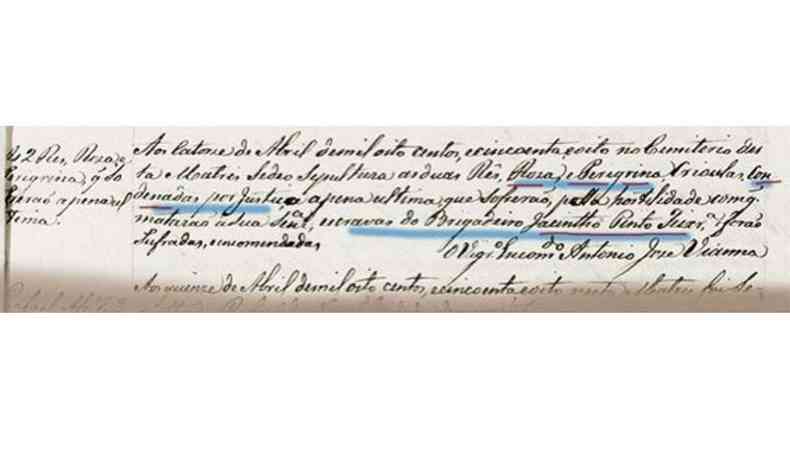 As 2 Res, Roza, e
Peregrina, q̃ so
frerão apena ul
tima.
Aos Catorse de Abril demil oito centos, ecincoenta, eoito no Cemiterio des
ta Matris Sedeo Sepultura asduas Rés, Roza, e Peregrina Crioulas, Con
denadas por Justiça apena ultima, que Sofrerão, pella hostilidade comq̃
matarão asua Senrª, escravas do Brigadeiro Jacintho Pinto Teixrª; forão
Sufradas, eencomendadas,
O Vigrº Encomdº Antonio Joze Vianna
Aos quinze de Abril demil oito centos, ecincoenta eoito nesta Matris